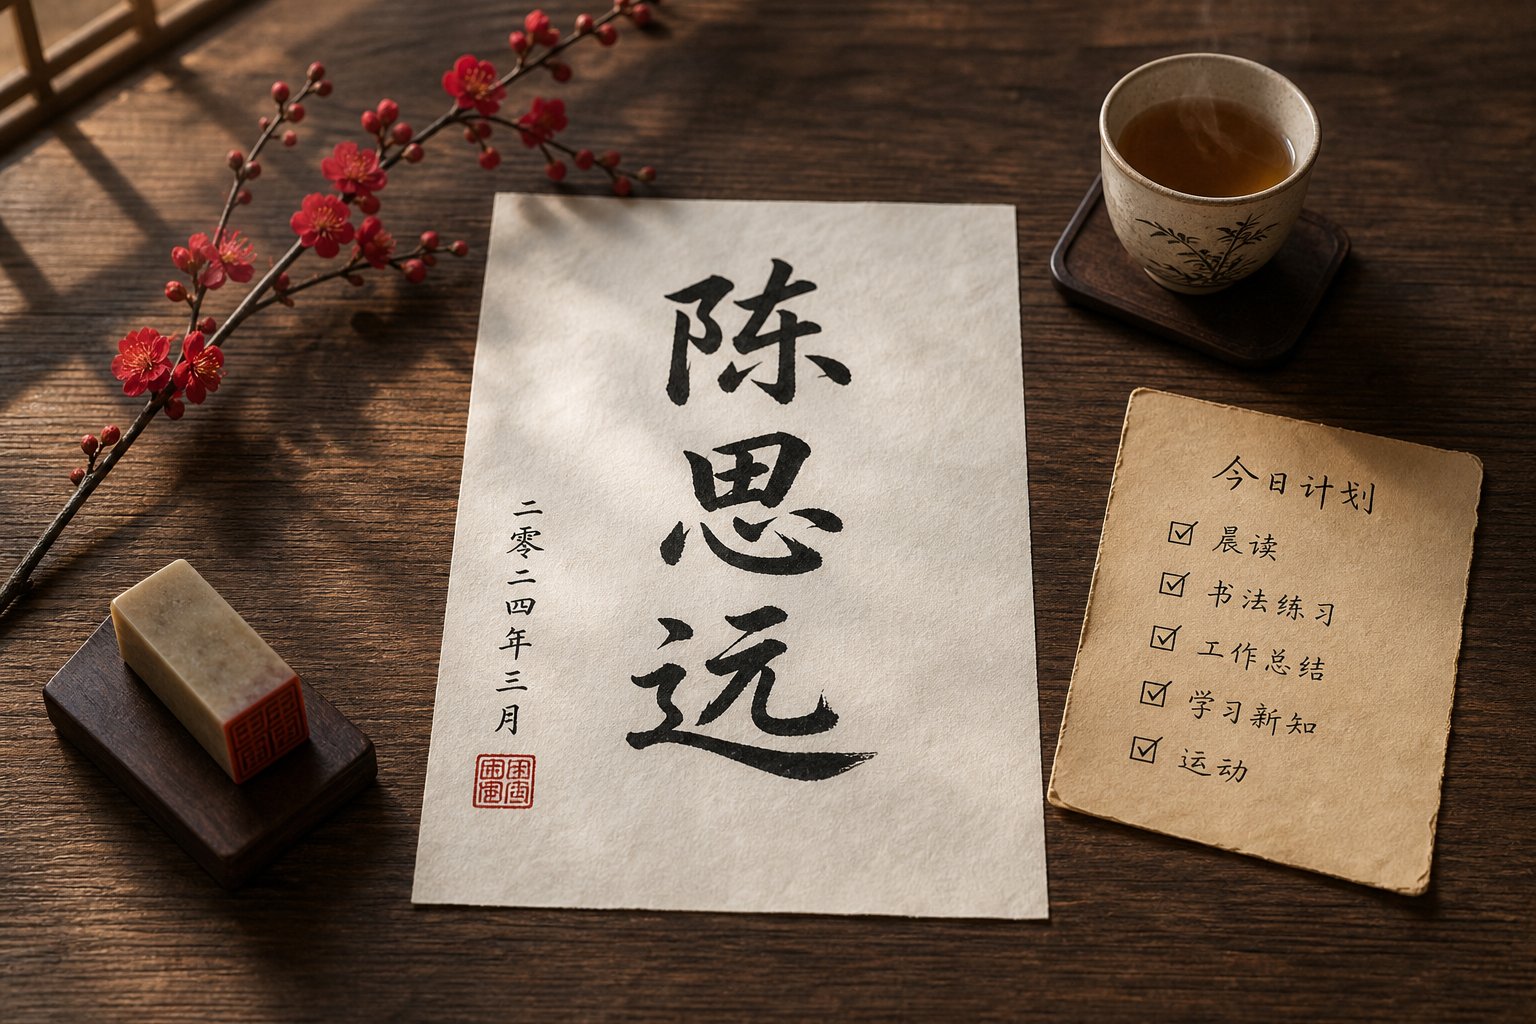 陈思远
二零二四年三月
今日计划
☑ 晨读
☑ 书法练习
☑ 工作总结
☑ 学习新知
☑ 运动